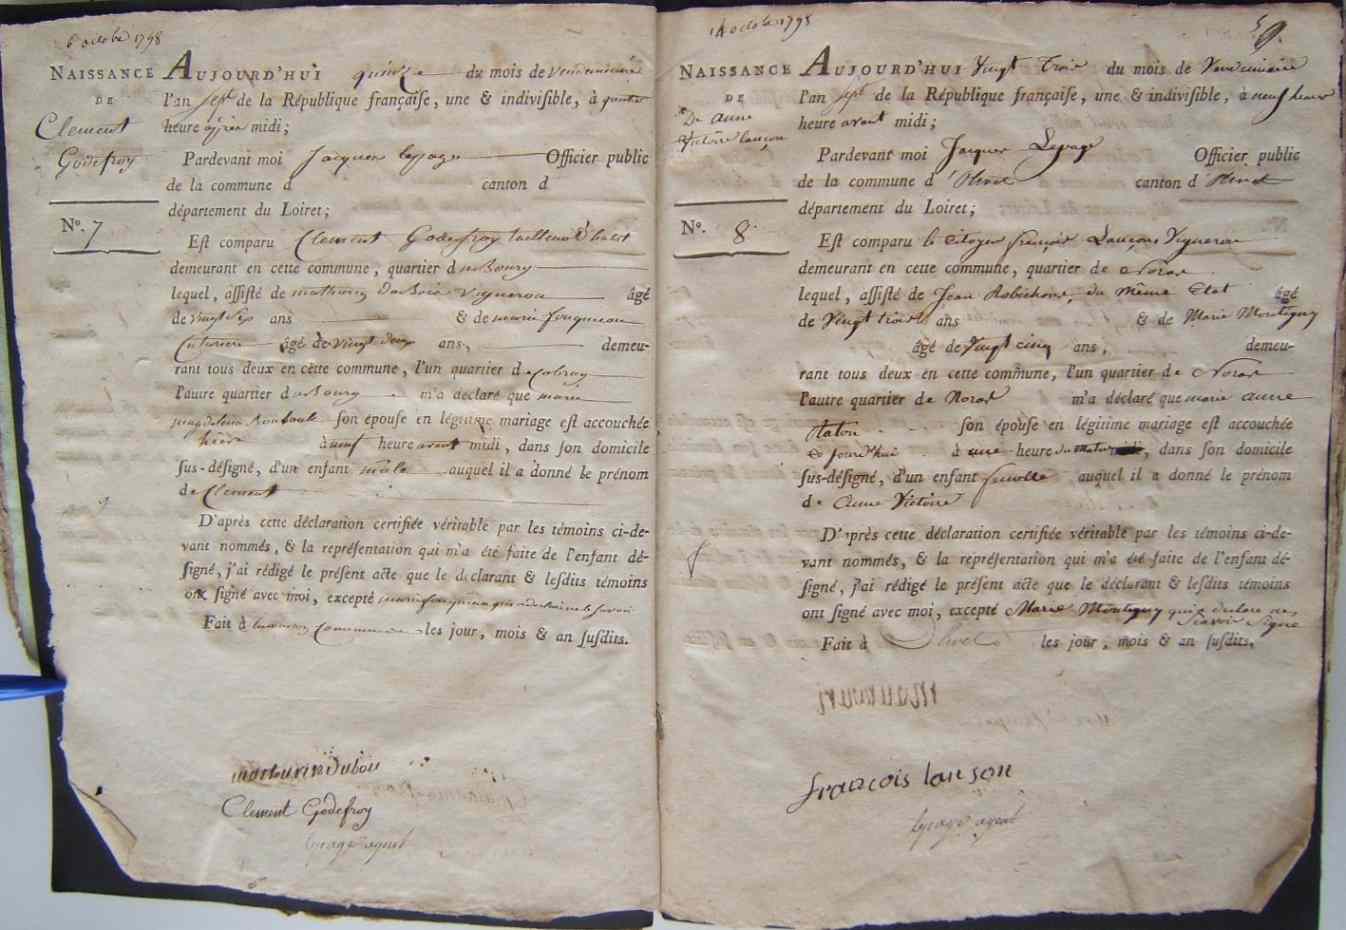 6 octobre 1798
NAISSANCE
DE
Clement
Godefroy
N°. 7
AUJOURD'HUI quinze du mois de vendemiaire
l'an sept de la République françaiſe, une & indiviſible, à quatre
heure après midi;
Pardevant moi Jacques lepage Officier public
de la commune d canton d
département du Loiret;
Eſt comparu Clement Godefroy tailleur d'habit
demeurant en cette commune, quartier du Bourg
lequel, aſſiſté de mathurin Dubois vigneron âgé
de vingt six ans & de marie fouqueau
âgé de vingt deux ans, demeu-
rant tous deux en cette commune, l'un quartier de
l'autre quartier du Bourg m'a déclaré que marie
magdeleine ſon épouſe en légitime mariage eſt accouchée
hier à neuf heure avant midi, dans ſon domicile
ſus-déſigné, d'un enfant male auquel il a donné le prénom
de Clement
D'après cette déclaration certifiée véritable par les témoins ci-de-
vant nommés, & la repréſentation qui m'a été faite de l'enfant dé-
ſigné, j'ai rédigé le préſent acte que le déclarant & leſdits témoins
ont ſigné avec moi, excepté marie fouqueau qui a declaré ne le savoir
Fait à commune les jour, mois & an ſuſdits.
mathurin Dubois
Clement Godefroy
lepage agent
14 octobre 1798
NAISSANCE
DE
De anne
Victoire lançon
N°. 8
AUJOURD'HUI Vingt Trois du mois de Vendemiaire
l'an sept de la République françaiſe, une & indiviſible, à neuf heure
heure avant midi;
Pardevant moi Jacques Lepage Officier public
de la commune d'Olivet canton d'Olivet
département du Loiret;
Eſt comparu le Citoyen françois Lançon Vigneron
demeurant en cette commune, quartier de Noras
lequel, aſſiſté de Jean Robichon, du même Etat âgé
de Vingt trois ans & de Marie Montigny
âgé de Vingt cinq ans, demeu-
rant tous deux en cette commune, l'un quartier de Noras
l'autre quartier de Noras m'a déclaré que marie anne
ſon épouſe en légitime mariage eſt accouchée
à une heure du matin, dans ſon domicile
ſus-déſigné, d'un enfant femelle auquel il a donné le prénom
de Anne Victoire
D'après cette déclaration certifiée véritable par les témoins ci-de-
vant nommés, & la repréſentation qui m'a été faite de l'enfant dé-
ſigné, j'ai rédigé le préſent acte que le déclarant & leſdits témoins
ont ſigné avec moi, excepté Marie Montigny qui a declaré ne
savoir signé
Fait à Olivet les jour, mois & an ſuſdits.
françois lanson
lepage agent